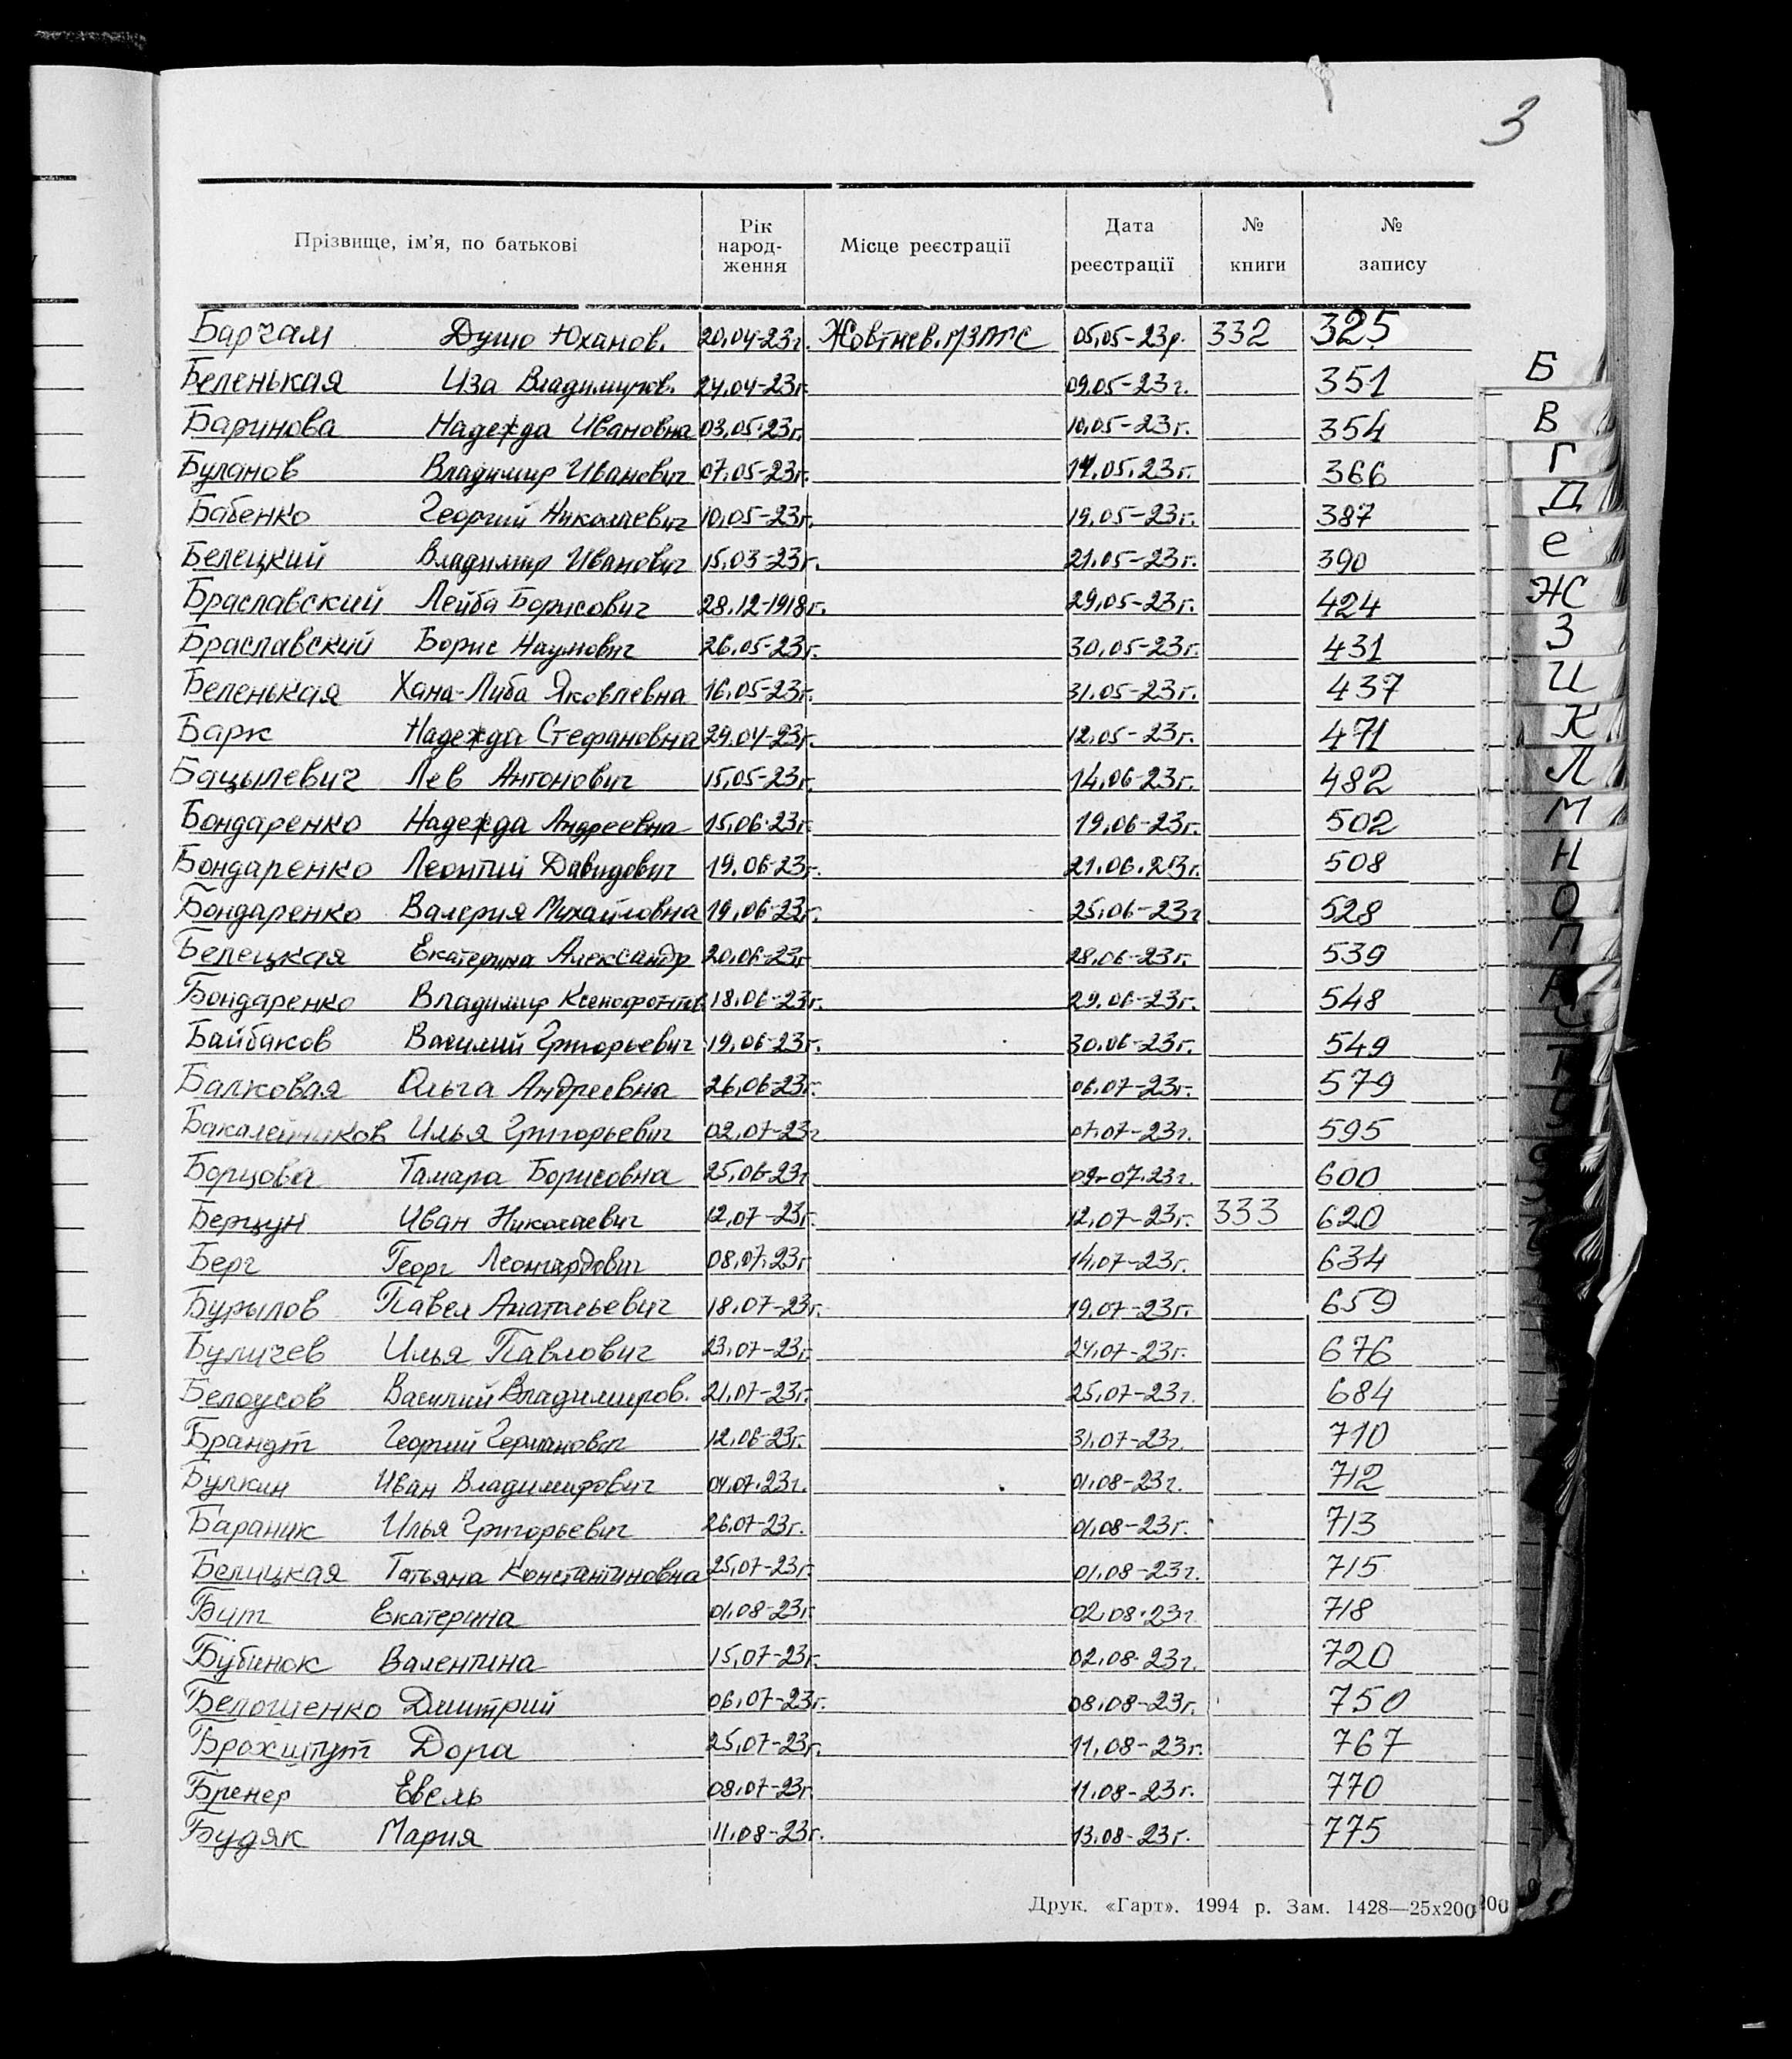 3
Прізвище, ім’я, по батькові Рік народ- ження Місце реєстрації Дата реєстрації № книги № запису
Барчам Душо Юханов. 20.04-23г. Жовтнев. 05.05-23р. 332 325
Беленькая Иза Владимиров. 24.04-23г. 09.05-23г. 351
Баринова Надежда Ивановна 03.05-23г. 10.05-23г. 354
Буланов Владимир Иванович 07.05-23г. 14.05.23г. 366
Бабенко Георгий Николаевич 10.05-23г. 19.05-23г. 387
Белецкий Владимир Иванович 15.03-23г. 21.05-23г. 390
Браславский Лейба Борисович 28.12-1918г. 29.05-23г. 424
Браславский Борис Наумович 26.05-23г. 30.05-23г. 431
Беленькая Хана-Либа Яковлевна 16.05-23г. 31.05-23г. 437
Барк Надежда Стефановна 29.04-23г. 12.05-23г. 471
Бацылевич Лев Антонович 15.05-23г. 14.06-23г. 482
Бондаренко Надежда Андреевна 15.06-23г. 19.06-23г. 502
Бондаренко Леонтий Давидович 19.06-23г. 21.06.23г. 508
Бондаренко Валерия Михайловна 19.06-23г. 25.06-23г 528
Белецкая Екатерина Александр 20.06-23г 28.06-23г. 539
Бондаренко Владимир Ксенофонтов 18.06-23г. 29.06-23г. 548
Байбаков Василий Григорьевич 19.06-23г. 30.06-23г. 549
Балковая Ольга Андреевна 26.06-23г. 06.07-23г. 579
Бакалейников Илья Григорьевич 02.07-23г 07.07-23г. 595
Борцова Тамара Борисовна 25.06-23г 09-07.23г. 600
Берцун Иван Николаевич 12.07-23г. 12.07-23г. 333 620
Берг Георг Леонгардович 08.07.23г. 14.07-23г. 634
Бурылов Павел Анатольевич 18.07-23г. 19.07-23г. 659
Буличев Илья Павлович 23.07-23г. 24.07-23г. 676
Белоусов Василий Владимиров. 21.07-23г. 25.07-23г. 684
Брандт Георгий Германович 12.06-23г. 31.07-23г. 710
Булкин Иван Владимирович 04.07.23г. 01.08-23г. 712
Бараник Илья Григорьевич 26.07-23г. 01.08-23г. 713
Белицкая Татьяна Константиновна 25.07-23г. 01.08-23г. 715
Бит Екатерина 01.08-23г. 02.08.23г. 718
Бубинок Валентина 15.07-23г. 02.08-23г. 720
Белошенко Дмитрий 06.07-23г. 08.08-23г. 750
Брохштут Дора 25.07-23г. 11.08-23г. 767
Бренер Евель 08.07-23г. 11.08-23г. 770
Будяк Мария 11.08-23г. 13.08-23г. 775
Друк. «Гарт». 1994 р. Зам. 1428—25х200
Б
В
Г
Д
е
Ж
З
И
К
Л
М
Н
О
П